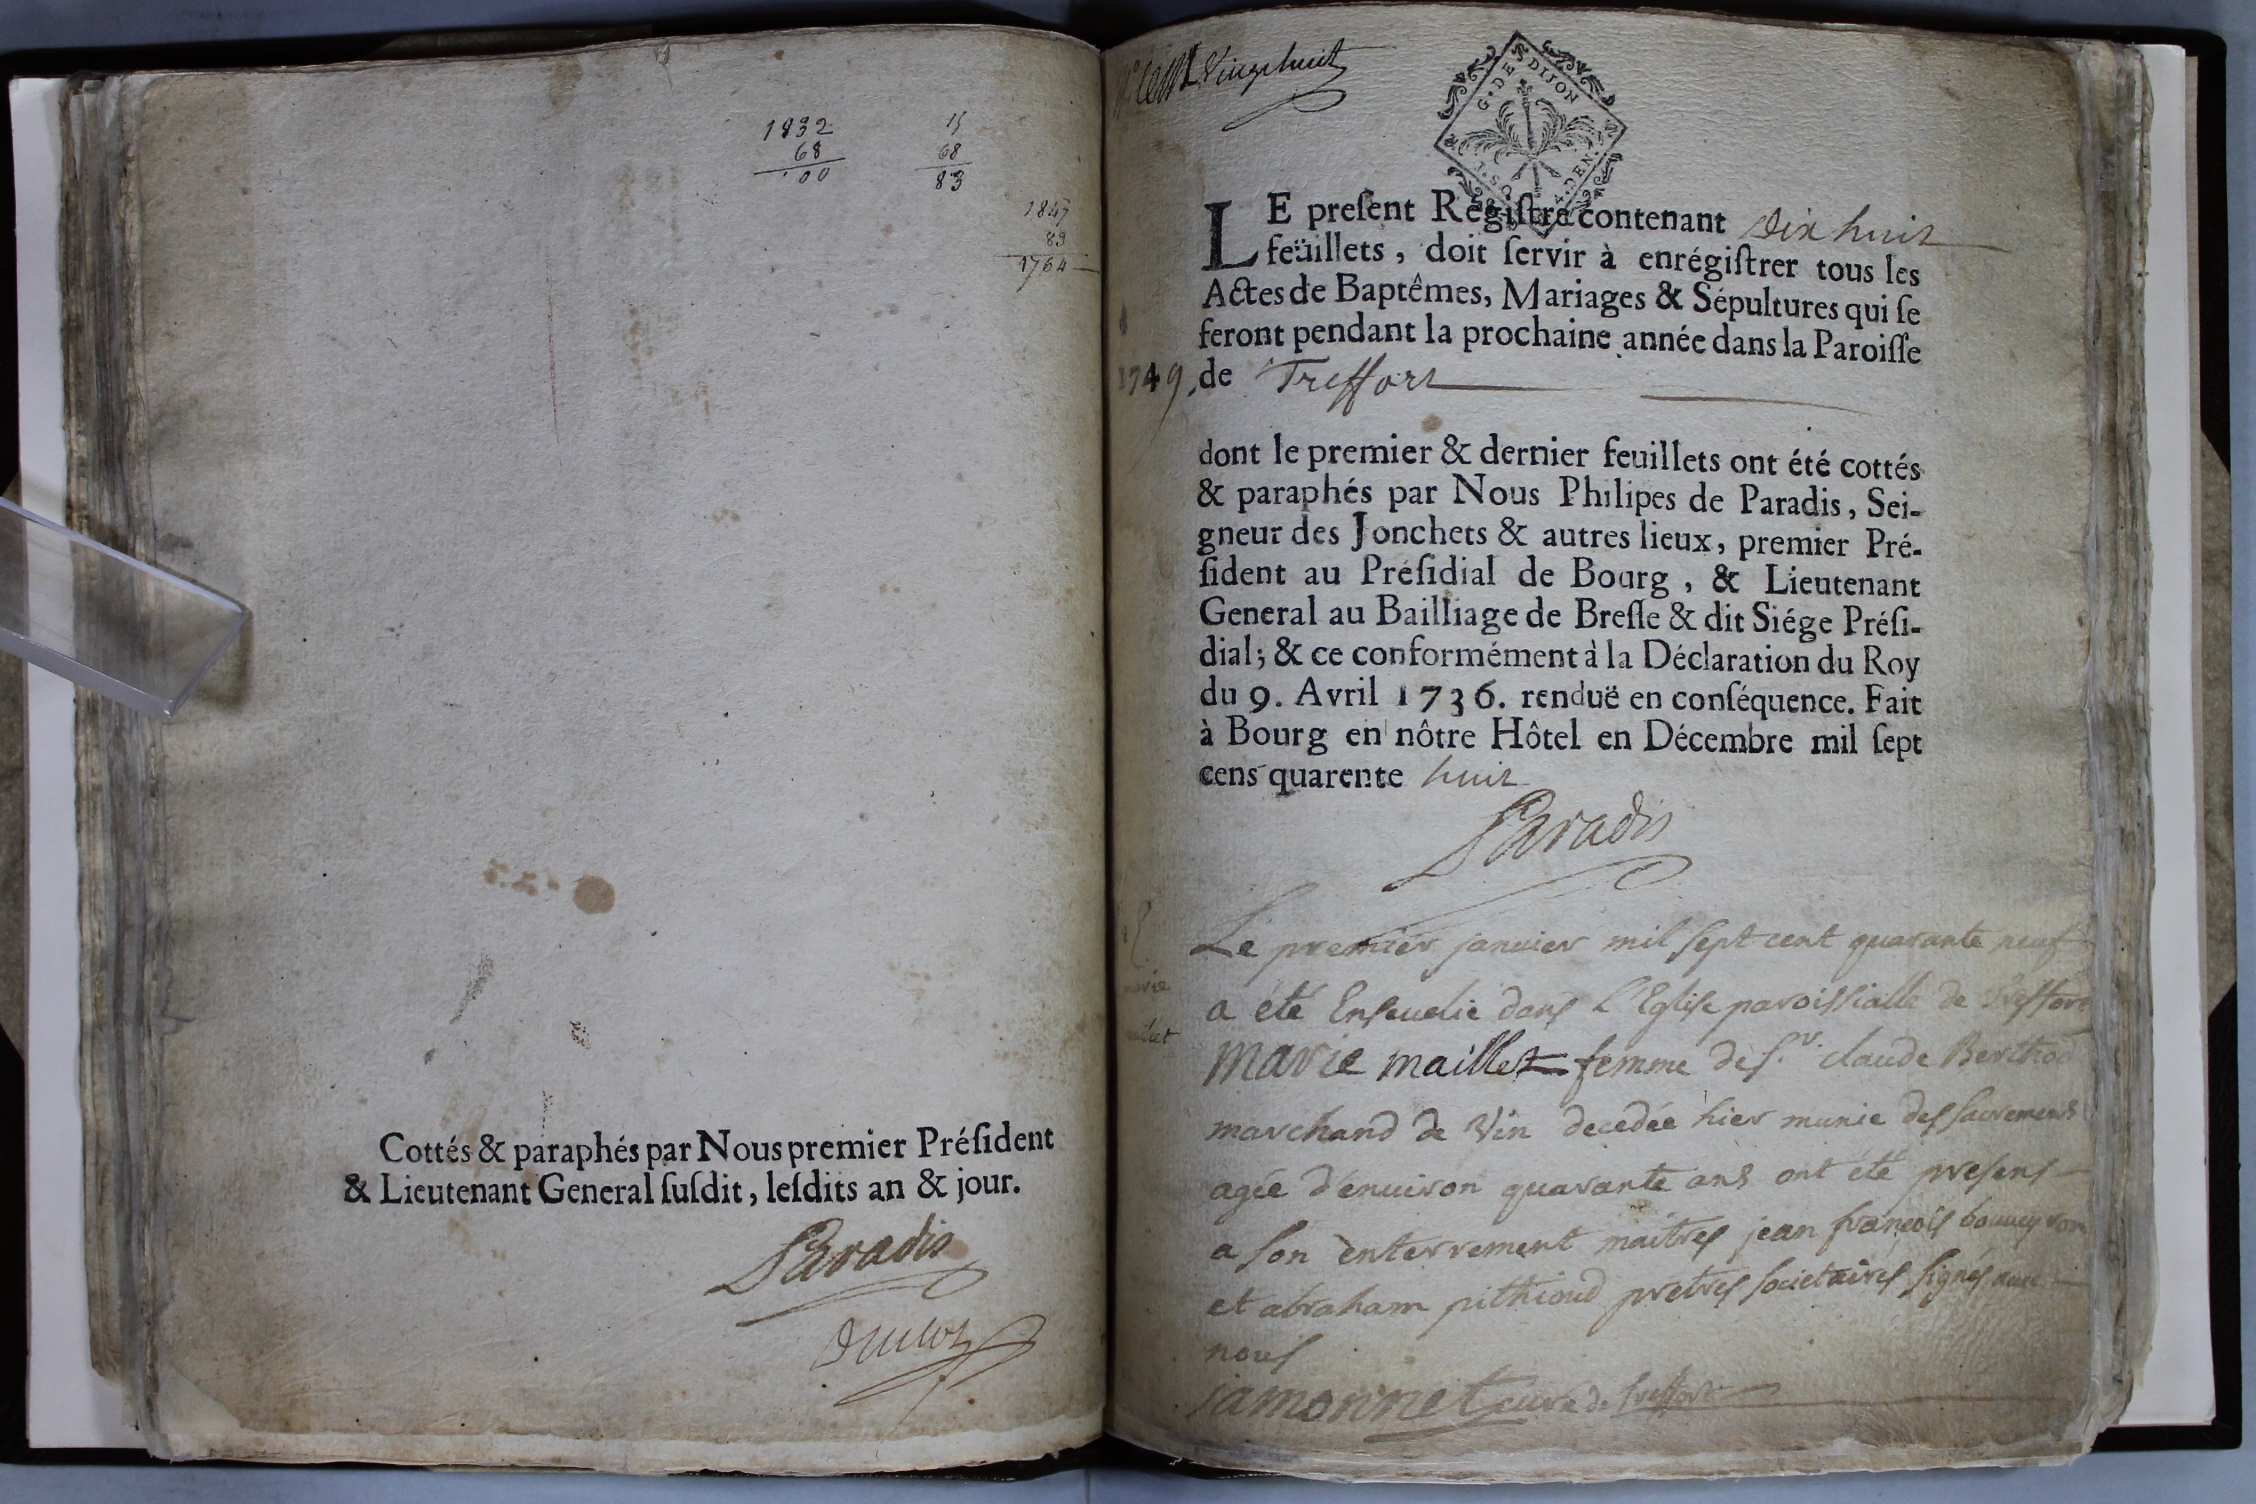 1832
68
00
15
68
83
1847
83
1764
Cottés & paraphés par Nous premier Préſident
& Lieutenant General ſuſdit, leſdits an & jour.
Paradis
vingt huit
G. DE DIJON
DEN.
LE preſent Regiſtre contenant Dix huit
feüillets, doit ſervir à enrégiſtrer tous les
Actes de Baptêmes, Mariages & Sépultures qui ſe
feront pendant la prochaine année dans la Paroiſſe
1749 de Treffort
dont le premier & dernier feuillets ont été cottés
& paraphés par Nous Philipes de Paradis, Sei-
gneur des Jonchets & autres lieux, premier Pré-
ſident au Préſidial de Bourg, & Lieutenant
General au Bailliage de Breſſe & dit Siége Préſi-
dial; & ce conformément à la Déclaration du Roy
du 9. Avril 1736. renduë en conſéquence. Fait
à Bourg en nôtre Hôtel en Décembre mil ſept
cens quarente huit
Paradis
Le premier janvier mil sept cent quarante neuf
a été Ensevelie dans L'Eglise paroissialle de Treffort
marie maillet femme de Sr. claude
marchand de Vin decedée hier munie des sacremens
agée d'environ quarante ans ont été presens
a son enterrement maitres jean françois
et abraham pithioud pretres societaires signés avec
nous
jamonnet curé de treffort